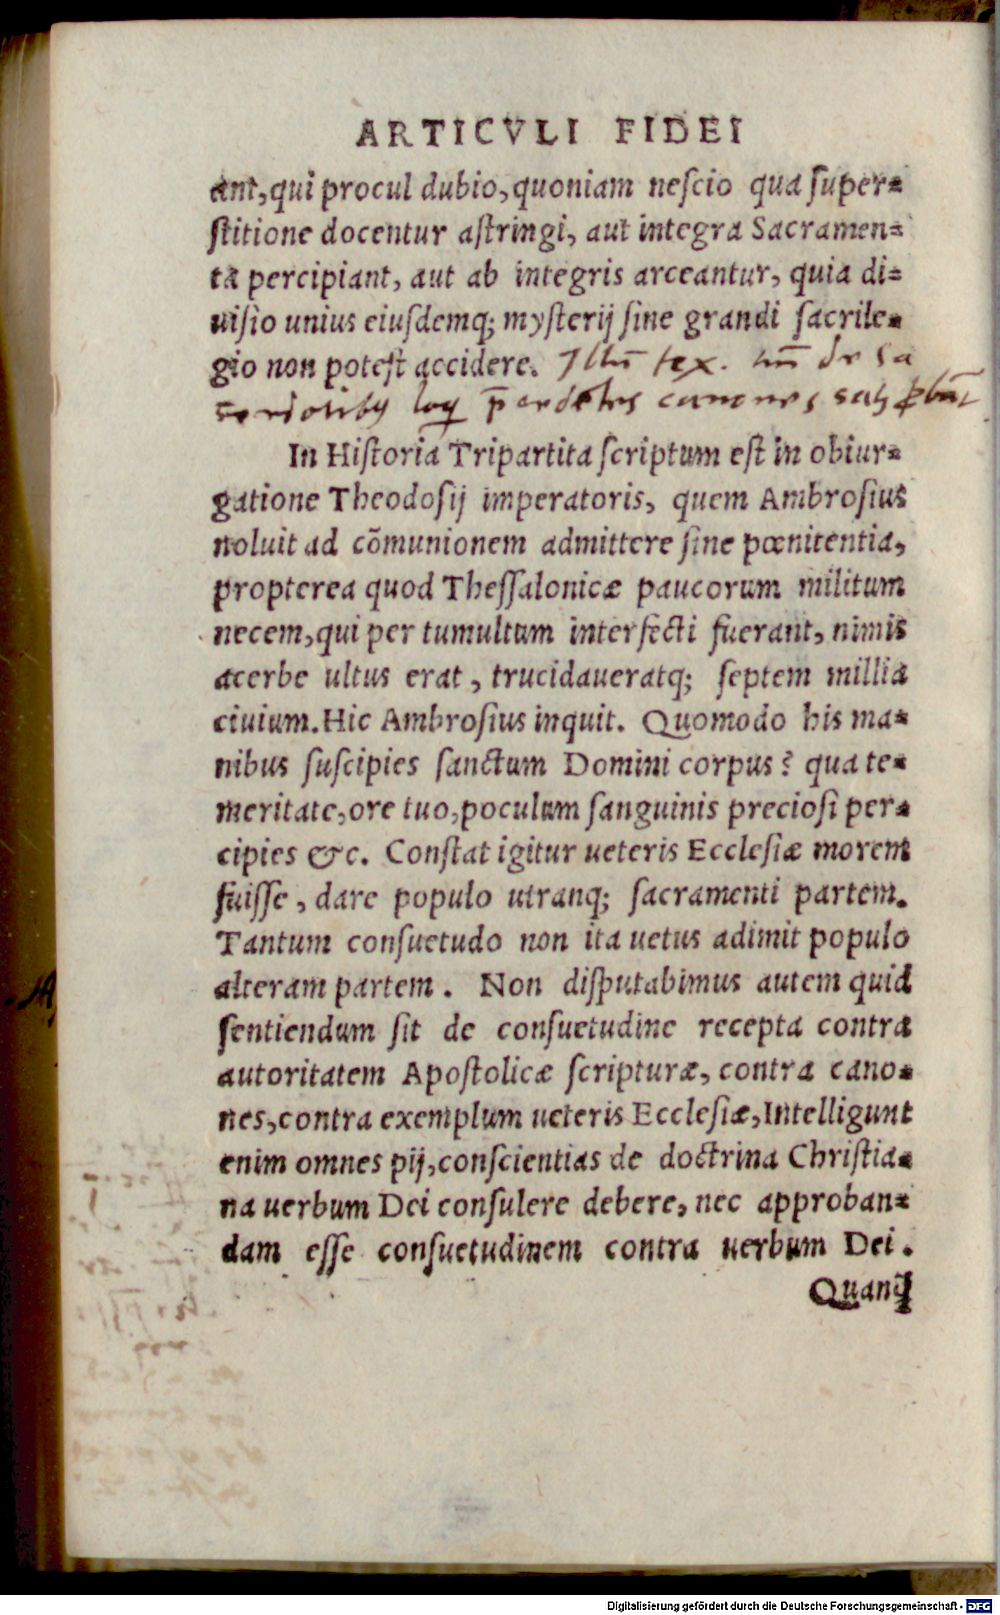 ARTICVLI FIDEI
ant, qui procul dubio, quoniam nescio qua super-
stitione docentur astringi, aut integra Sacramen-
ta percipiant, aut ab integris arceantur, quia di-
uisio unius eiusdemq; mysterij sine grandi sacrile-
gio non potest accidere. tex. de sa
canones
In Historia Tripartita scriptum est in obiur-
gatione Theodosij imperatoris, quem Ambrosius
noluit ad cõmunionem admittere sine pœnitentia,
propterea quod Thessalonicæ paucorum militum
necem, qui per tumultum interfecti fuerant, nimis
acerbe ultus erat, trucidaueratq; septem millia
ciuium. Hic Ambrosius inquit. Quomodo his ma-
nibus suscipies sanctum Domini corpus? qua te-
meritate, ore tuo, poculum sanguinis preciosi per-
cipies &c. Constat igitur ueteris Ecclesiæ morem
fuisse, dare populo utranq; sacramenti partem.
Tantum consuetudo non ita uetus adimit populo
alteram partem. Non disputabimus autem quid
sentiendum sit de consuetudine recepta contra
autoritatem Apostolicæ scripturæ, contra cano-
nes, contra exemplum ueteris Ecclesiæ, Intelligunt
enim omnes pij, conscientias de doctrina Christia-
na uerbum Dei consulere debere, nec approban-
dam esse consuetudinem contra uerbum Dei.
Quanq̃
Digitalisierung gefördert durch die Deutsche Forschungsgemeinschaft - DFG